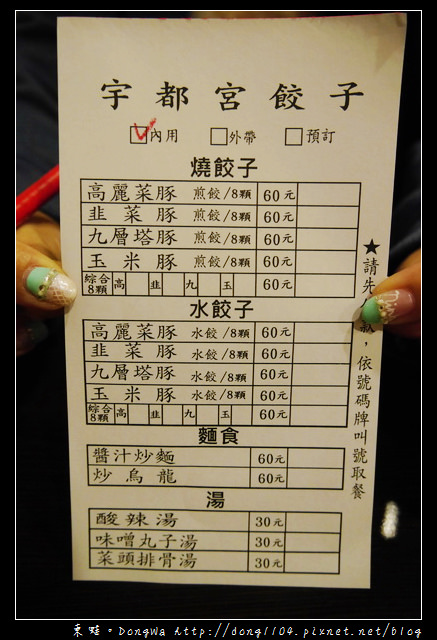 宇都宮餃子
內用 外帶 預訂
燒餃子
高麗菜豚 煎餃/8顆 60元
韭菜豚 煎餃/8顆 60元
九層塔豚 煎餃/8顆 60元
玉米豚 煎餃/8顆 60元
綜合8顆 高 韭 九 玉 60元
水餃子
高麗菜豚 水餃/8顆 60元
韭菜豚 水餃/8顆 60元
九層塔豚 水餃/8顆 60元
玉米豚 水餃/8顆 60元
綜合8顆 高 韭 九 玉 60元
麵食
醬汁炒麵 60元
炒烏龍 60元
湯
酸辣湯 30元
味噌丸子湯 30元
菜頭排骨湯 30元
★請先 款，依號碼牌叫號取餐
東蛙。DongWa http://dong1104.pixnet.net/blog